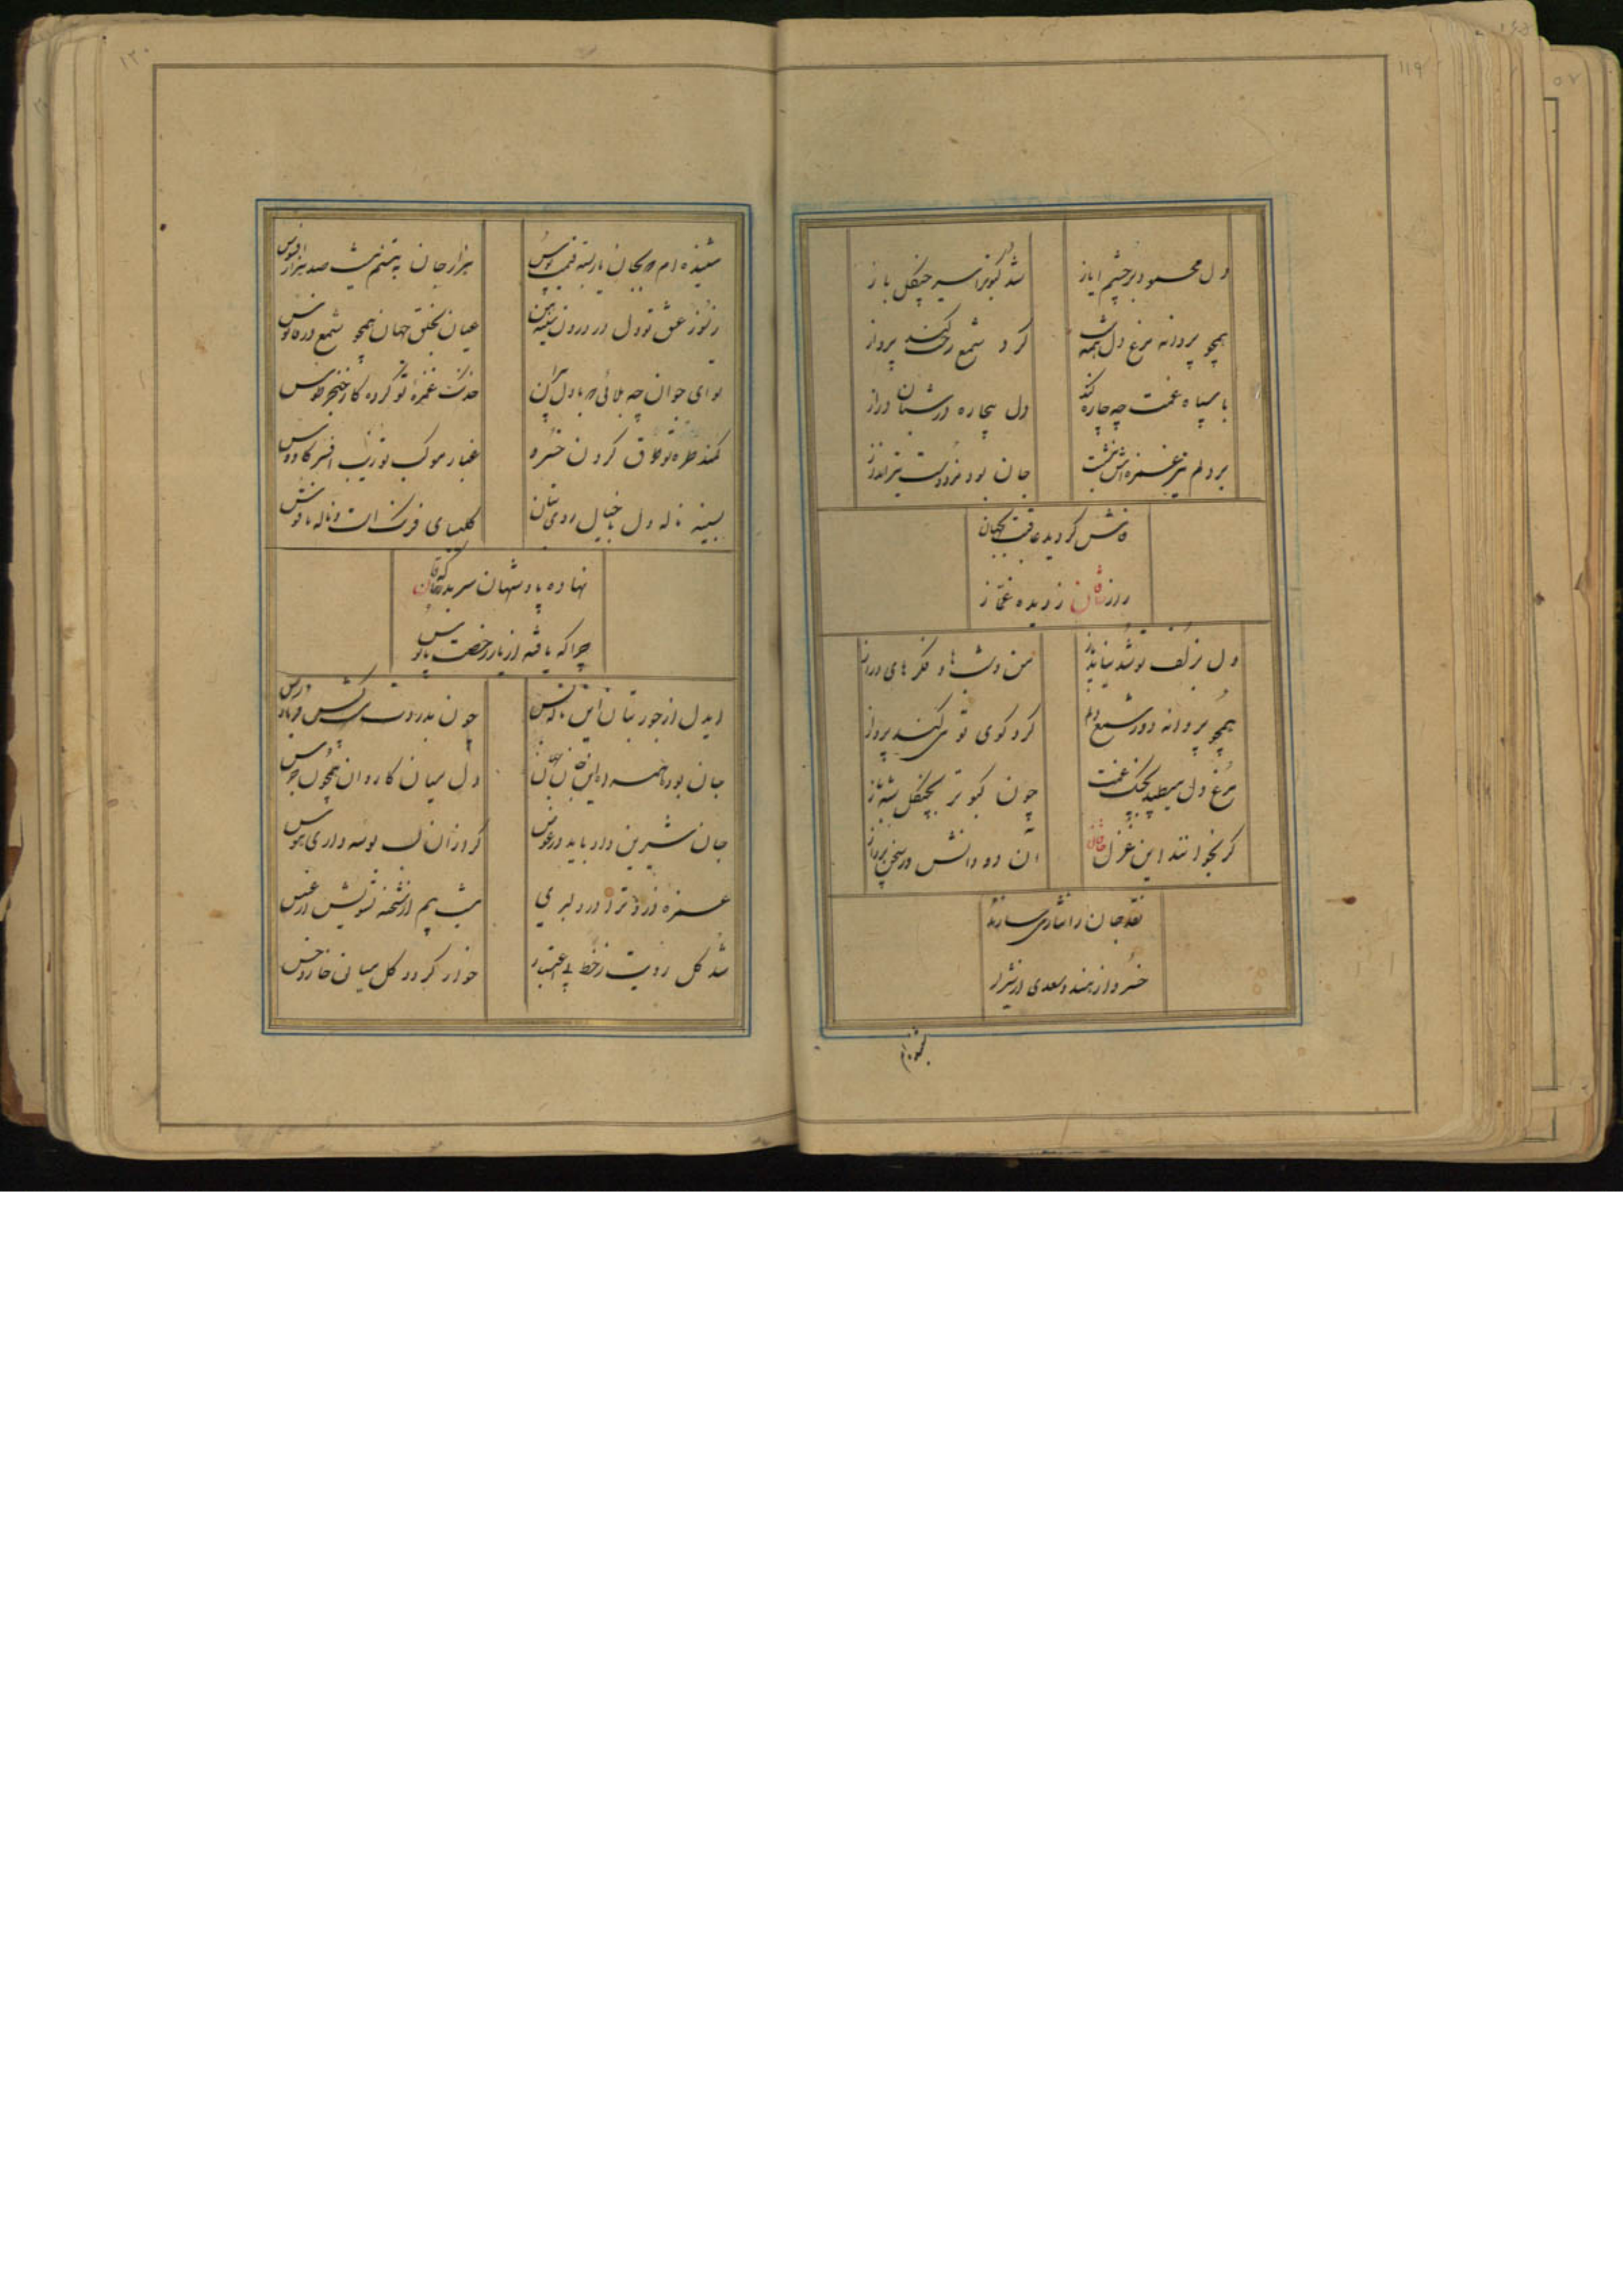 ۱۱۹
دل محمود بر چشم ایاز
شد کبوتر اسیر چنگل باز
همچو پروانه مرغ دل همه شب
گرد شمع رخت کند پرواز
با سپاه غمت چه چاره کند
دل بیچاره در شبان دراز
بر دلم تیر غمزه‌اش بنشست
جان بود مزد دست تیرانداز
فاش گردید عاقبت بجهان
راز خاقان ز دیده غماز
دل بزلف تو شد
من و شبها و فکرهای دراز
همچو پروانه دور شمع دلم
گرد کوی تو می کند پرواز
مرغ دل میطپد بچنگ غمت
چون کبوتر بچنگل شهباز
گر بخوانند این غزل خاقان
آن دو دانش ور سخن پرداز
نقد جان را نثار می سازند
خسرو از هند و سعدی از شیراز
۱۲۰
شنیده‌ام که بجان یار بسته قیمت بوس
هزار جان به تنم نیست صد هزار افسوس
ز نور عشق تو دل در درون سینه من
عیان بخلق جهان همچو شمع در فانوس
تو ای جوان چه بلائی که با دل پیران
خدنگ غمزه تو کرده کار خنجر طوس
کمند طره تو طوق گردن خسرو
غبار موکب تو زیب افسر کاوس
بسینه ناله دل با خیال روی بتان
کلیسای فرنگ است و ناله ناقوس
نهاده پادشهان سر بدرگه خاقان
چرا که یافته از یار رخصت پابوس
ایدل از جور بتان این ناله بس
چون بدردت نیست کس فریادرس
جان بود همره این
دل میان کاروان همچون جرس
جان شیرین داد باید در عوض
گر از آن لب بوسه داری هوس
غمزه دزد ترا در دلبری
نیست بیم از شحنه تشویش از عسس
شد گل رویت ز خط بی اعتبار
خوار گردد گل میان خار و خس